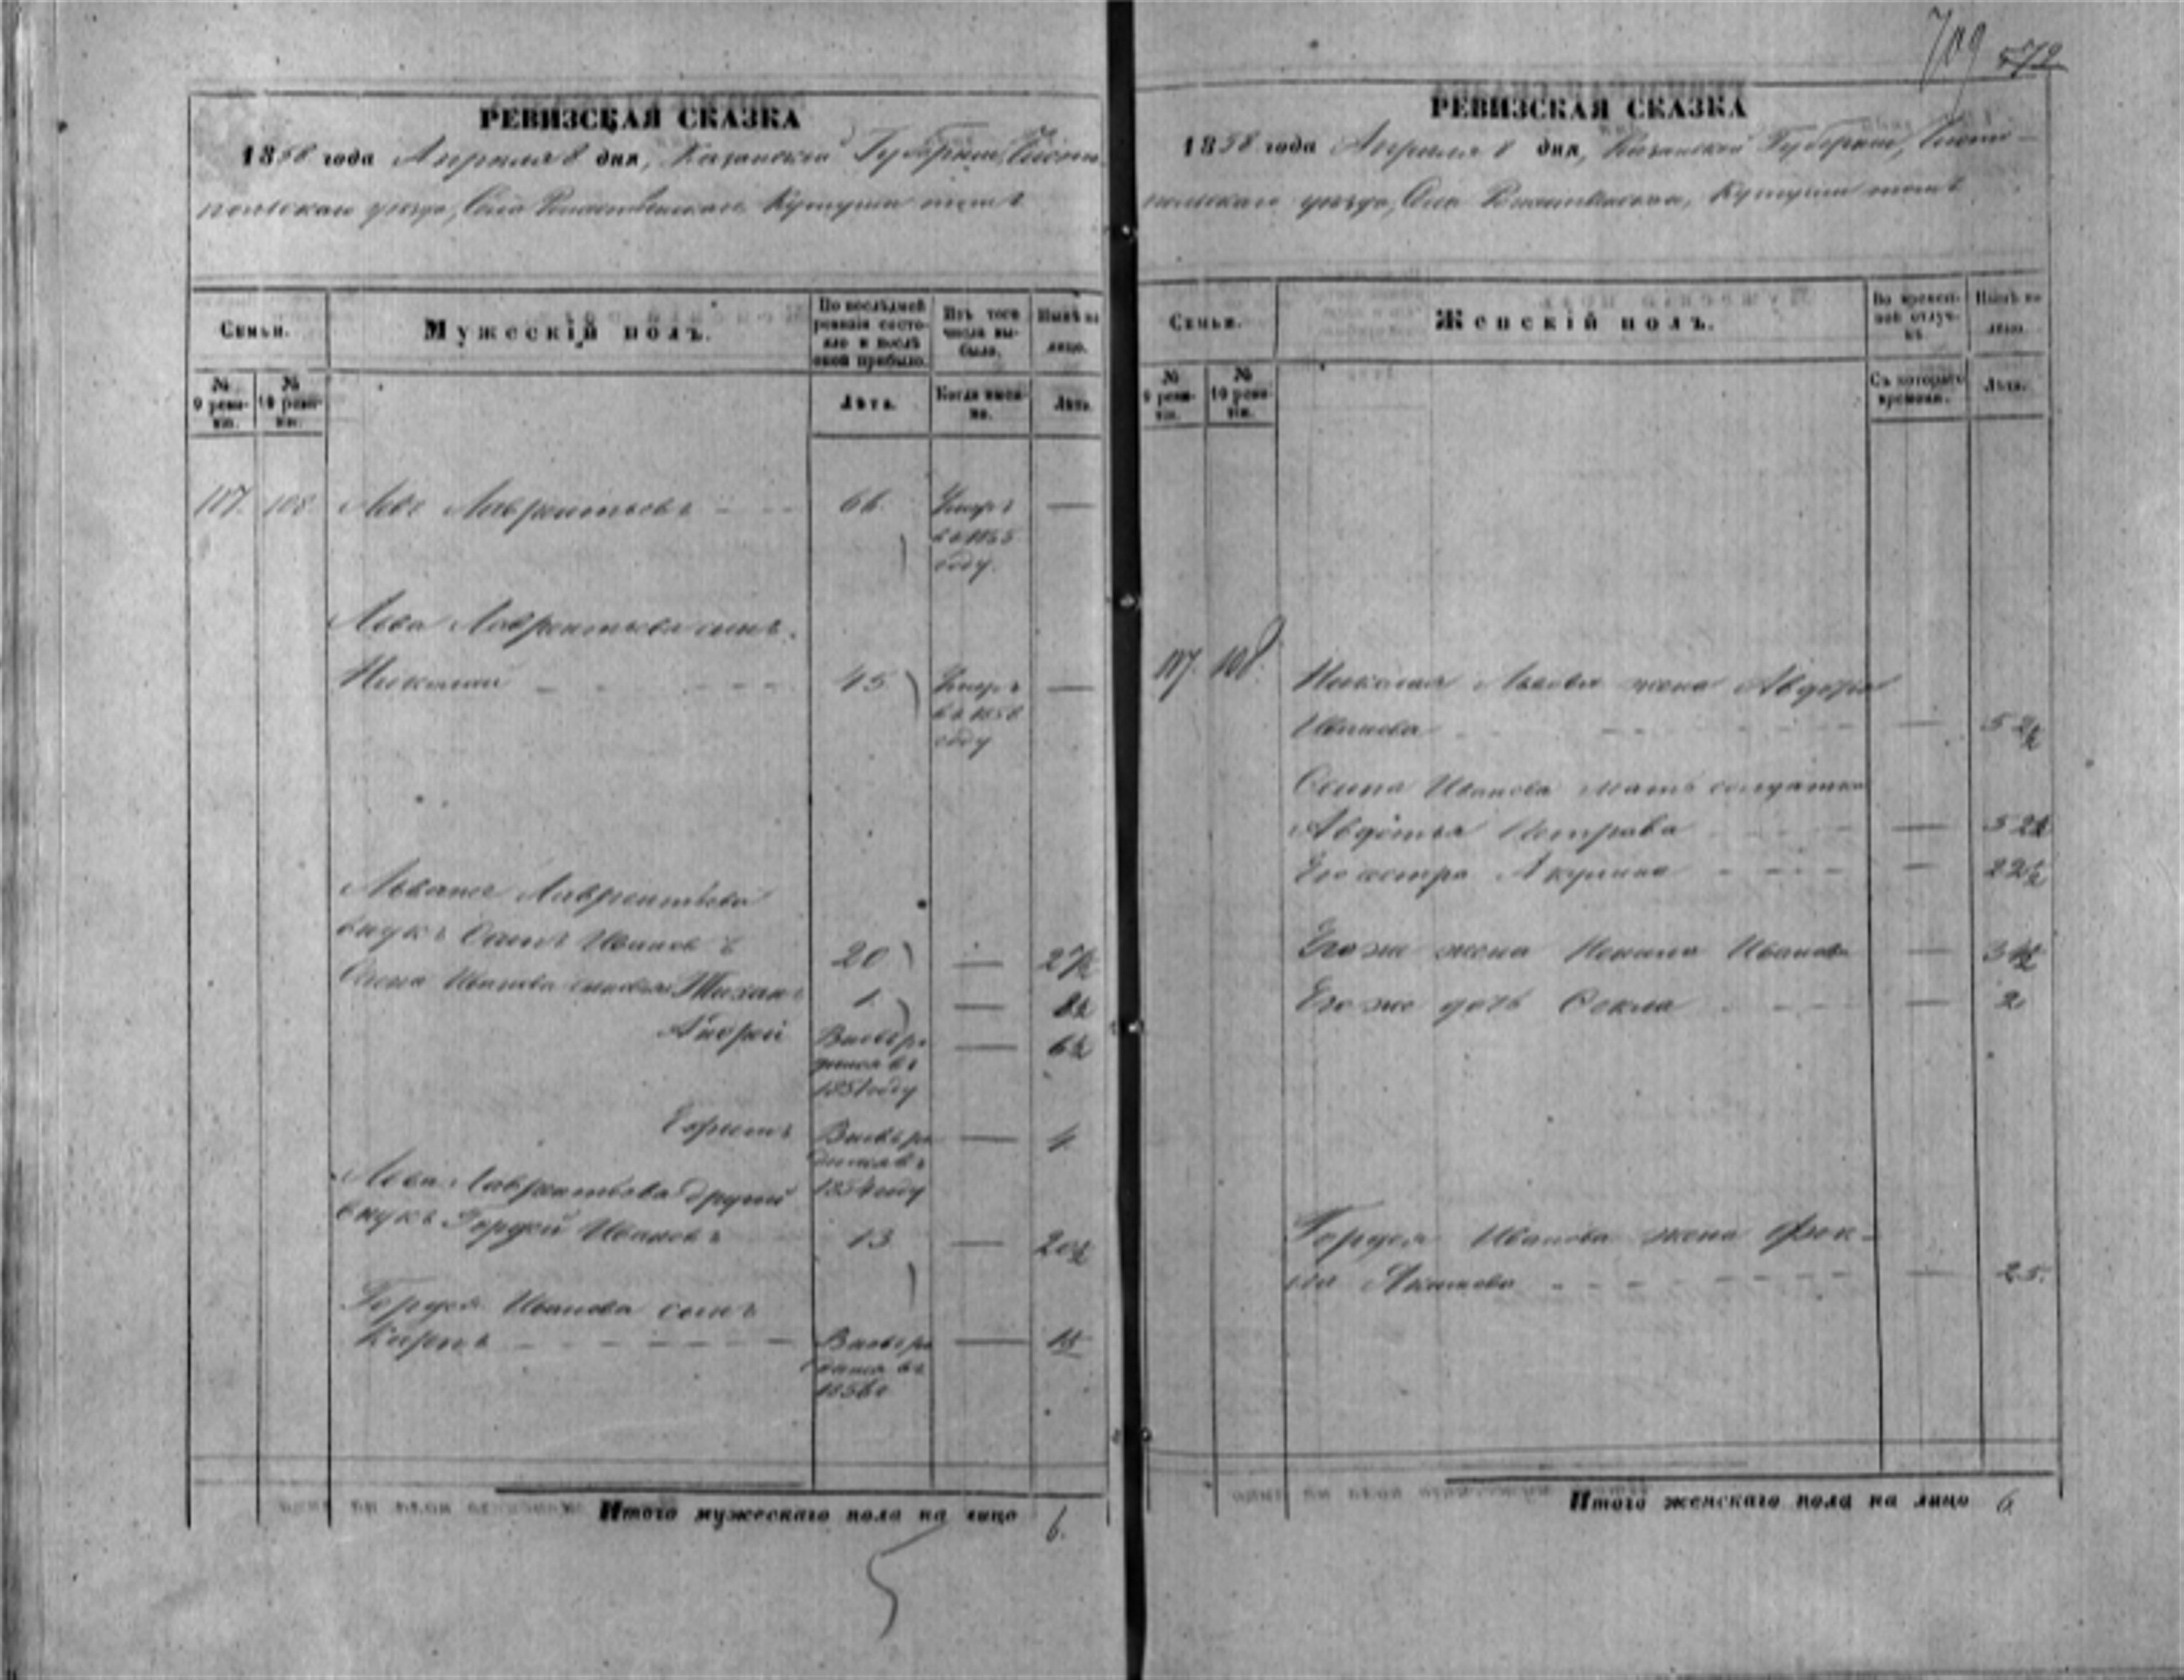 709 572
РЕВИЗСКАЯ СКАЗКА
1858 года Апреля 8 дня, Казанской Губернии, Чисто
польскаго уезда, Села Рождественскаго, Кутуши тожъ
Семьи.
Мужескій полъ.
По послѣдней ревизіи состояло и послѣ оной прибыло.
Изъ того числа выбыло.
Нынѣ на лицо.
№ 9 ревизіи.
№ 10 ревизіи.
Лѣта.
Когда именно.
Лѣта.
107. 108 Левъ Лаврентьевъ 66. Умеръ —
въ 1855
году.
Льва Лаврентьева сынъ
Николай 45 Умеръ —
въ 1858
году
Львана Лаврентьева
внукъ Осипъ Ивановъ 20 — 27½
Осипа Иванова сыновья Тихонъ 1 — 8½
Андрей Вновь ро — 6½
дился въ
1851 году
Ефимъ Вновь ро — 4
дился въ
Льва Лаврентьева другий 1854 году
внукъ Гордей Ивановъ 13 — 20½
Гордея Иванова сынъ
Карпъ Вновь ро — 1½
дился въ
1856 г
Итого мужескаго пола на лицо 6.
5
РЕВИЗСКАЯ СКАЗКА
1858 года Апреля 8 дня, Казанской Губернии, Чисто-
польскаго уезда, Села Рождественскаго, Кутуши тожъ
Семьи.
Женскій полъ.
Во временной отлучкѣ.
Нынѣ на лицо.
№ 9 ревизіи.
№ 10 ревизіи.
Съ котораго времени.
Лѣта.
107. 108. Николая Львова жена Авдотья
Иванова — 52½
Осипа Иванова мать солдатка
Авдотья Петрова — 52½
Его сестра Акулина — 22½
Его же жена Ненила Иванова —
Его же дочь Фекла — 2
Гордея Иванова жена Фек-
ла Якимова — 25.
Итого женскаго пола на лицо 6